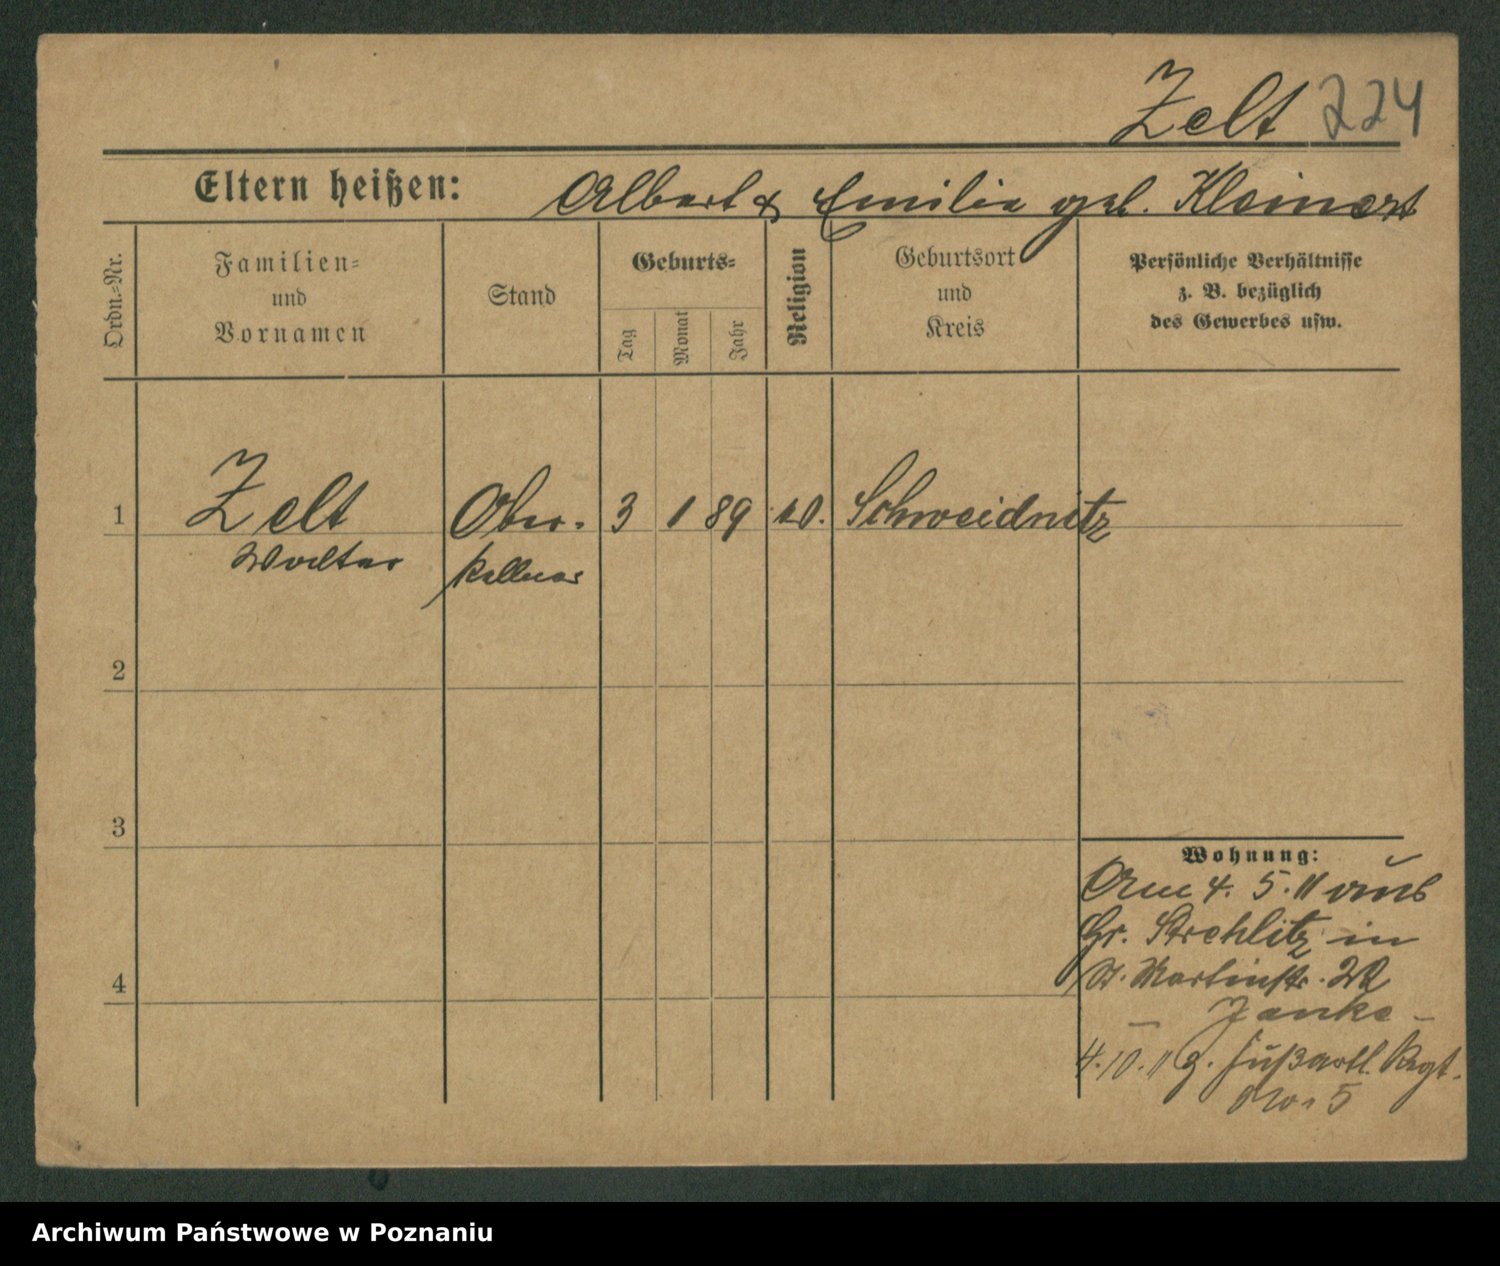 Zelt 224
Eltern heißen: Albert & Emilie geb. Kleinert
Ordn.-Nr.
Familien-
und
Vornamen
Stand
Geburts-
Tag
Monat
Jahr
Religion
Geburtsort
und
Kreis
Persönliche Verhältnisse
z. B. bezüglich
des Gewerbes usw.
1 Zelt Ober- 3 1 89 Schweidnitz
Walter kellner
2
3
4
Wohnung:
Am 4. 5. 11 aus
Gr. Strehlitz in
St. Martinstr.
– Janke –
4.10.11 z. Fußartl. Regt.
No. 5
Archiwum Państwowe w Poznaniu